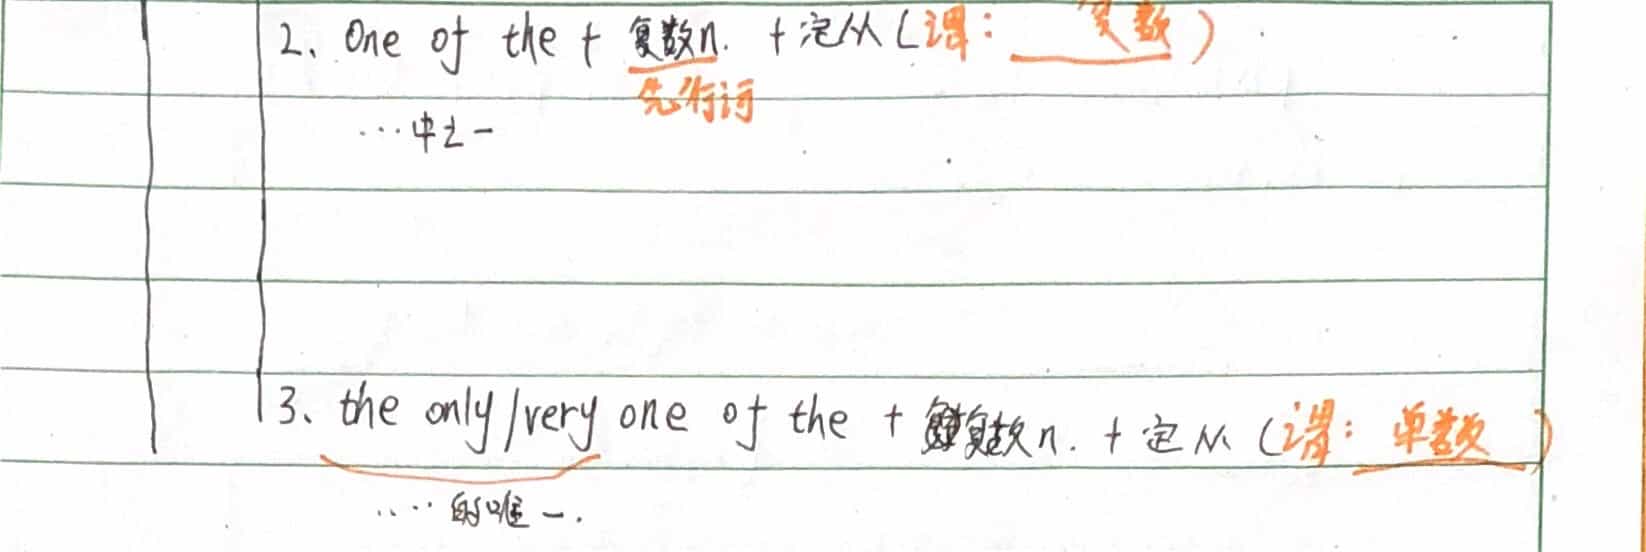 2、One of the + 复数n. + 定从(谓: 复数)
先行词
…中之一
3、the only/very one of the + 复数n. + 定从(谓: 单数)
…的唯一.